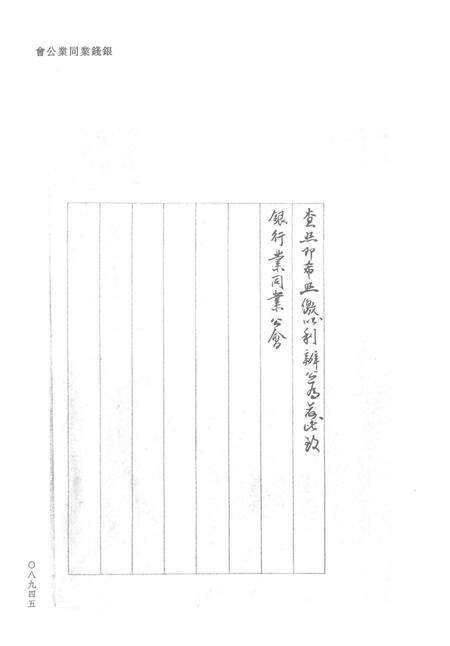 會公業同業錢銀
查照即希照繳以利辦公為荷此致
銀行業同業公會
〇八九四五